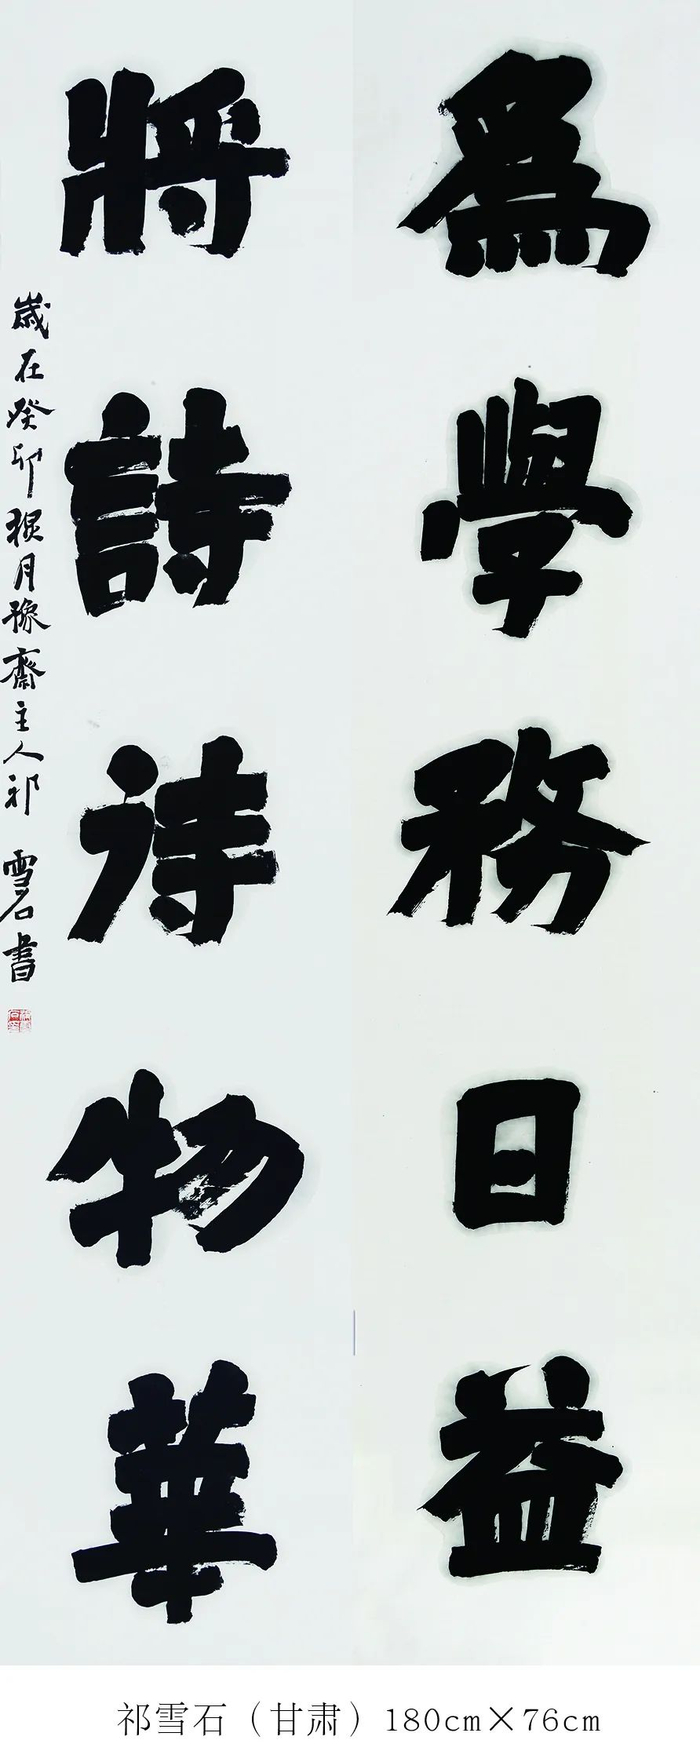 為學務日益
將詩待物華
歲在癸卯猴月豫齋主人祁雪石書
祁雪石（甘肃）180cm×76cm